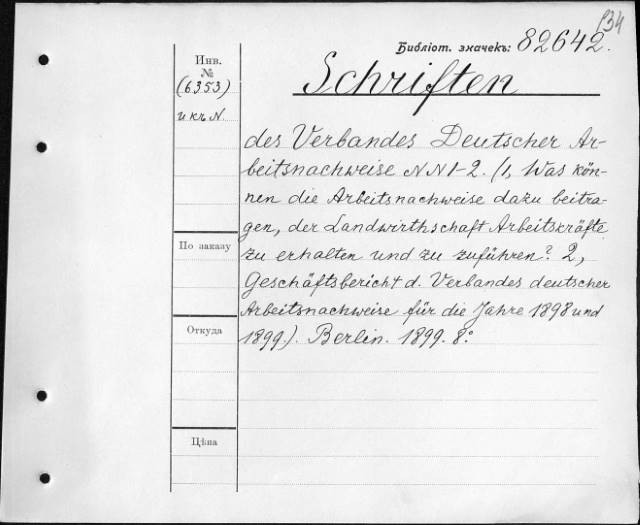 134
Библіот. значекъ: 82642.
Инв.
№
(6353)
Schriften
des Verbandes Deutscher Ar-
beitsnachweise NN 1-2. (1, Was kön-
nen die Arbeitsnachweise dazu beitra-
gen, der Landwirthschaft Arbeitskräfte
zu erhalten und zu zuführen? 2,
Geschäftsbericht d. Verbandes deutscher
Arbeitsnachweise für die Jahre 1898 und
1899.). Berlin. 1899. 8º
По заказу
Откуда
Цѣна